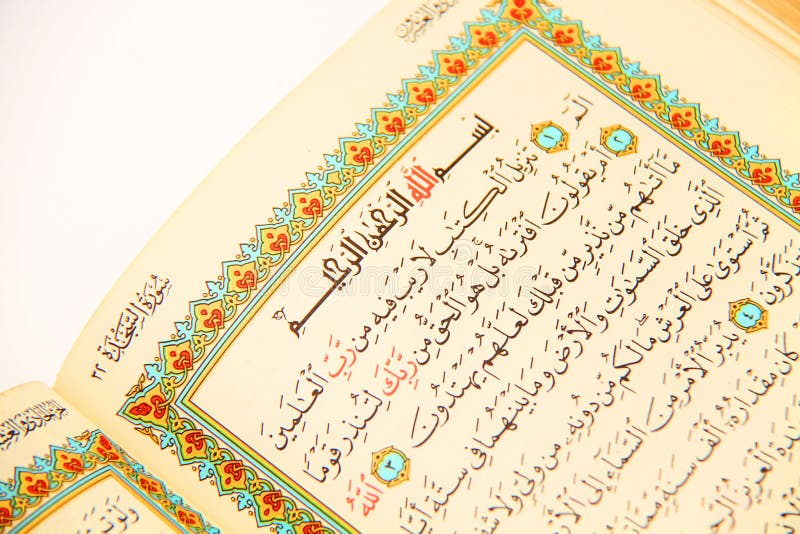 سُورَةُ السَّجْدَةِ ٣٢
بِسْمِ اللَّهِ الرَّحْمَٰنِ الرَّحِيمِ
الٓمٓ ١ تَنْزِيلُ الْكِتَٰبِ لَا رَيْبَ فِيهِ مِنْ رَبِّ الْعَالَمِينَ
٢ أَمْ يَقُولُونَ افْتَرَىٰهُ بَلْ هُوَ الْحَقُّ مِنْ رَبِّكَ لِتُنْذِرَ قَوْمًا
مَا أَتَىٰهُمْ مِنْ نَذِيرٍ مِنْ قَبْلِكَ لَعَلَّهُمْ يَهْتَدُونَ ٣ اَللَّهُ
الَّذِي خَلَقَ السَّمَٰوَاتِ وَالْأَرْضَ وَمَا بَيْنَهُمَا فِي سِتَّةِ
ثُمَّ اسْتَوَىٰ عَلَى الْعَرْشِ مَا لَكُمْ مِنْ دُونِهِ مِنْ وَلِيٍّ وَلَا
٤ يُدَبِّرُ الْأَمْرَ مِنَ السَّمَاءِ إِلَى
كَانَ مِقْدَارُهُ أَلْفَ سَنَةٍ
الْعَزِيزُ